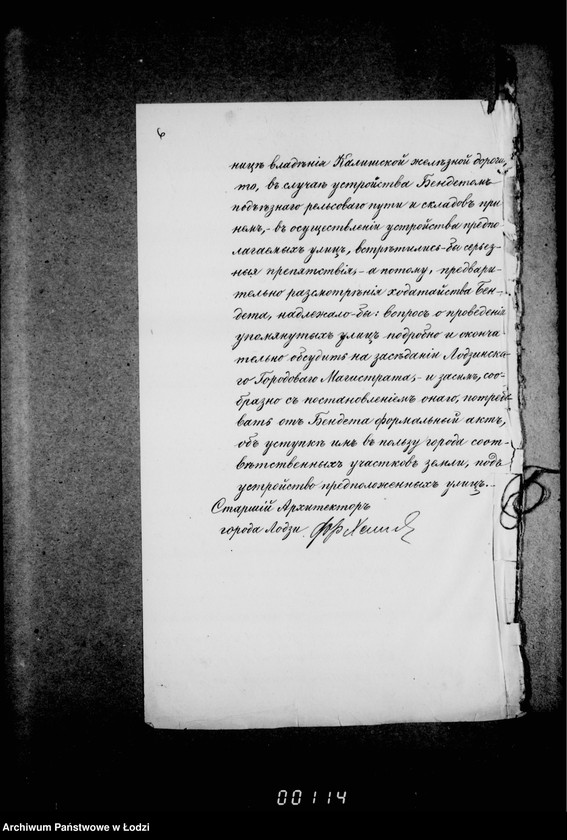 6
ницѣ владѣнія Калишской желѣзной дороги,
то, въ случаѣ устройства Бендетомъ
подъѣзнаго рельсоваго пути и складовъ при
немъ,- въ осуществленіи устройства предпо
лагаемыхъ улицъ, встрѣтились-бы серьез-
ныя препятствія,- а потому, предвари-
тельно разсмотрѣнія ходатайства Бен-
дета, надлежало-бы: вопросъ о проведеніи
упомянутыхъ улицъ подробно и оконча
тельно обсудить на засѣданіи Лодзинска-
го Городоваго Магистрата,- и засимъ, соо-
бразно съ постановленіемъ онаго, потребо
вать отъ Бендета формальный актъ,
объ уступкѣ имъ въ пользу города соот-
вѣтственныхъ участковъ земли, подъ
устройство предположенныхъ улицъ.-
Старшій Архитекторъ
города Лодзи
00114
Archiwum Państwowe w Łodzi